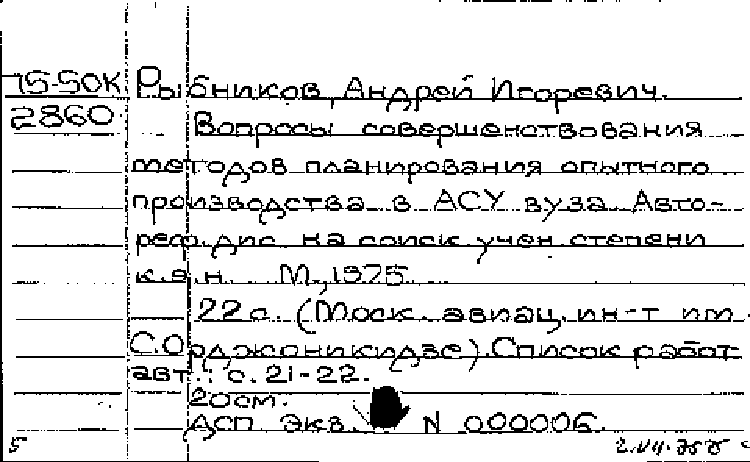 75-50К Рыбников, Андрей Игоревич.
2860 Вопросы совершенствования
методов планирования опытного
производства в АСУ вуза. Авто-
реф. дис. на соиск. учен. степени
к.э.н. М., 1975.
22 с. (Моск. авиац. ин-т им.
С. Орджоникидзе). Список работ
авт.: с. 21-22.
20см.
ДСП экз. N 000006.
5